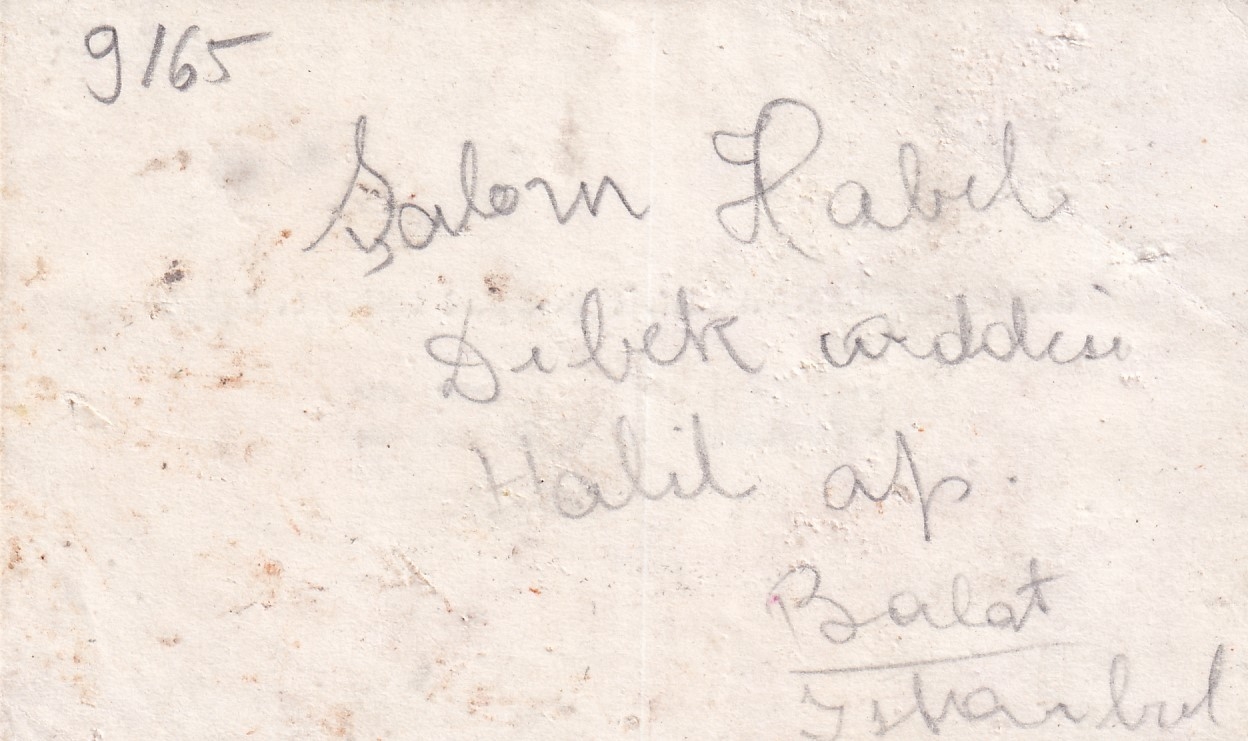 9/65
Şalom Habib
Dibek caddesi
Halil ap.
Balat
Istanbul